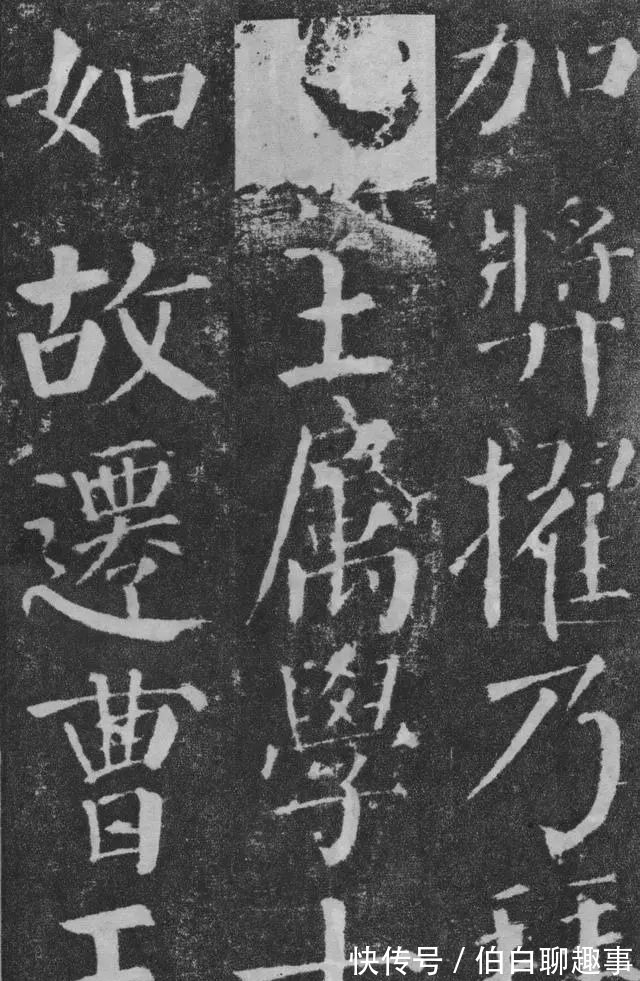 加奬擢乃
王属學
如故遷曹
快传号 / 伯白聊趣事